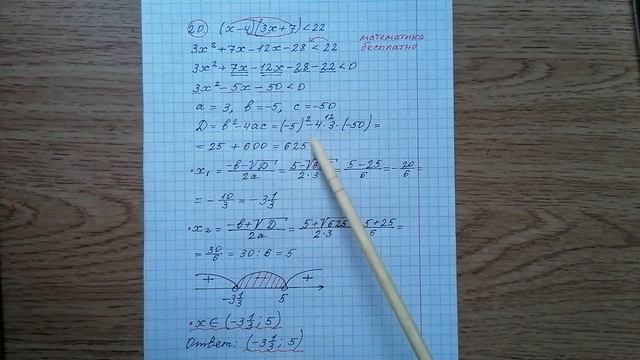 20. (x-4)(3x+7)<22
математика
бесплатно
3x²+7x-12x-28<22
3x²+7x-12x-28-22<0
3x²-5x-50<0
a=3, b=-5, c=-50
D=b²-4ac=(-5)²-4·3·(-50)=
12
=25+600=625
·x₁=(-b-√D)/2a=(5-√6)/(2·3)=(5-25)/6=-20/6=
=-10/3=-3 1/3
·x₂=(-b+√D)/2a=(5+√625)/(2·3)=(5+25)/6=
=30/6=30:6=5
+ - +
-3 1/3 5
·x∈(-3 1/3; 5)
Ответ: (-3 1/3; 5)